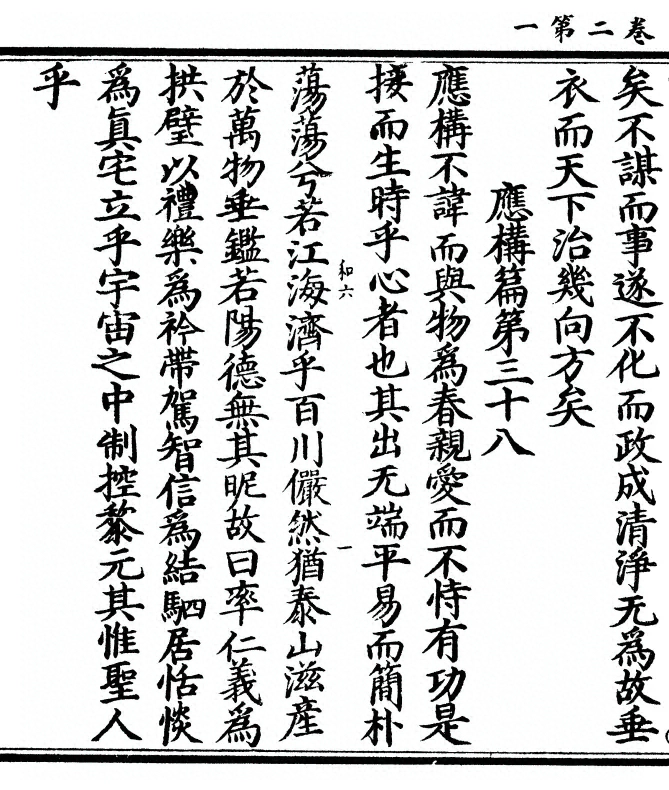 卷二第一
矣不謀而事遂不化而政成清淨无爲故垂
衣而天下治幾向方矣
應構篇第三十八
應構不諱而與物爲春親愛而不恃有功是
接而生時乎心者也其出无端平易而簡朴
和六
一
蕩蕩兮若江海濟乎百川儼然猶泰山滋產
於萬物垂鑑若陽德無其昵故曰率仁義爲
拱璧以禮樂爲衿帶駕智信爲結駟居恬惔
爲眞宅立乎宇宙之中制控黎元其惟聖人
乎